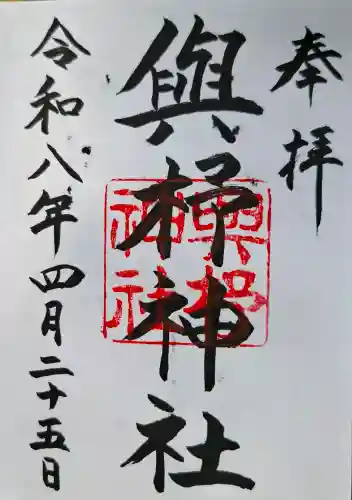 奉拝
與杼神社
與杼神社
令和八年四月二十五日